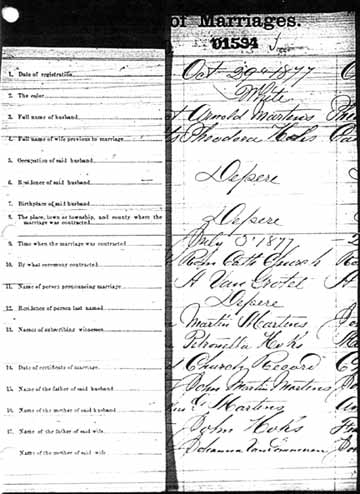 of Marriages.
01594
1. Date of registration
Oct 29 1877
2. The color
White
3. Full name of husband
Arnold Martens
4. Full name of wife previous to marriage
Theodora Hohs
5. Occupation of said husband
6. Residence of said husband
Depere
7. Birthplace of said husband
8. The place, town or township, and county where the
marriage was contracted
Depere
9. Time when the marriage was contracted
July 1877
10. By what ceremony contracted
Rom Cath Church
11. Name of person pronouncing marriage
A Van
12. Residence of person last named
Depere
13. Names of subscribing witnesses
Martin Martens
Petronella Hohs
14. Date of certificate of marriage
Church Record
15. Name of the father of said husband
John Martin Martens
16. Name of the mother of said husband
Martens
17. Name of the father of said wife
John Hohs
Name of the mother of said wife
Johanna